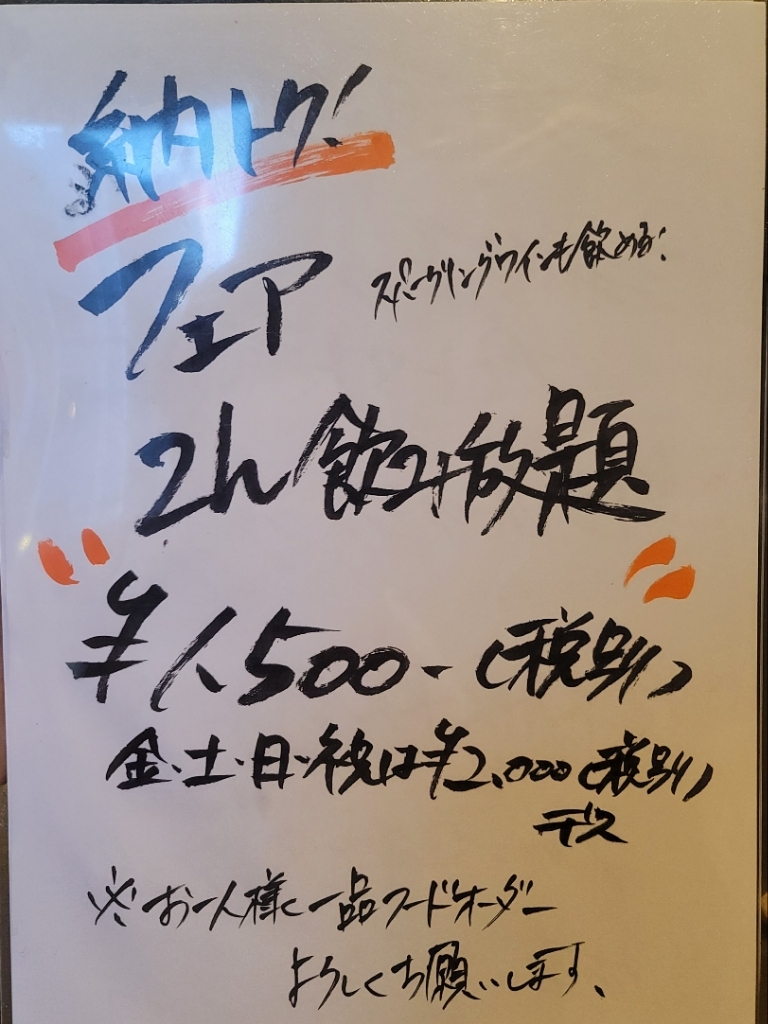 納トク!
フェア
スパークリングワインも飲める!
2h 飲み放題
¥1,500-(税別)
金・土・日・祝は¥2,000(税別)
デス
※お一人様一品フードオーダー
よろしくお願いします、